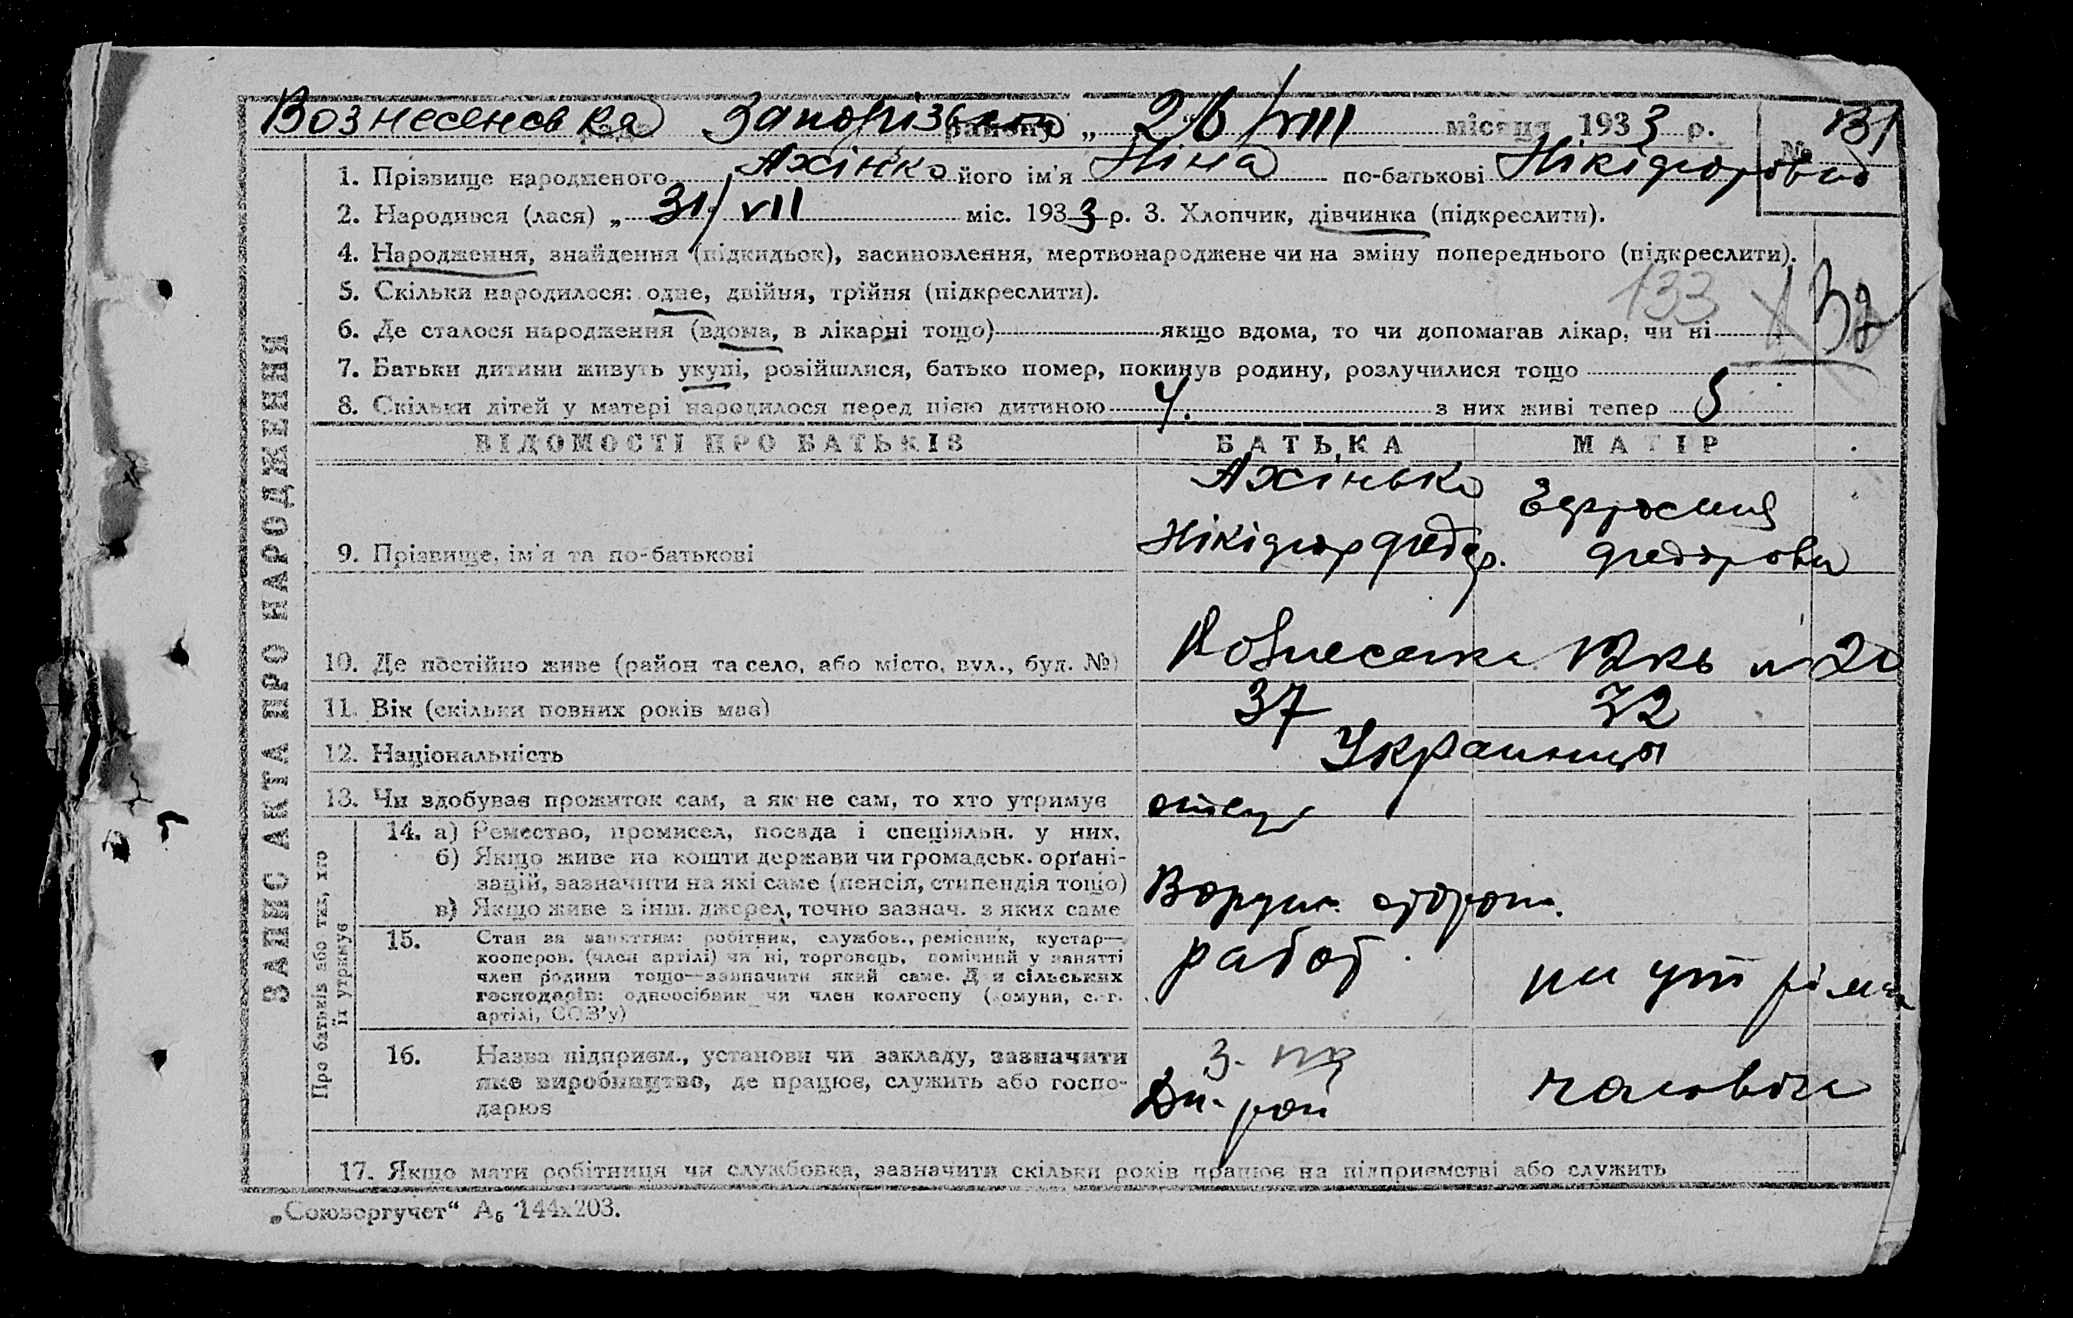 Вознесеновка Запорізьк району „ 26/VIII місяця 1933 р. № 131
1. Прізвище народженого Ахінко його ім'я Ніна по-батькові Нікіфоровна
2. Народився (лася) „ 31/VII міс. 1933 р. 3. Хлопчик, дівчинка (підкреслити).
4. Народження, знайдення (підкидьок), засиновлення, мертвонароджене чи на зміну попереднього (підкреслити).
133 132
5. Скільки народилося: одне, двійня, трійня (підкреслити).
6. Де сталося народження (вдома, в лікарні тощо) якщо вдома, то чи допомагав лікар, чи ні
7. Батьки дитини живуть укупі, розійшлися, батько помер, покинув родину, розлучилися тощо
8. Скільки дітей у матері народилося перед цією дитиною 4. з них живі тепер 5
ВІДОМОСТІ ПРО БАТЬКІВ БАТЬКА МАТІР
Ахінько
9. Прізвище, ім'я та по-батькові Нікіфор Федор. Федоровна
10. Де постійно живе (район та село, або місто, вул., буд. №) 20
11. Вік (скільки повних років має) 37 32
12. Національність Украинцы
13. Чи здобуває прожиток сам, а як не сам, то хто утримує отец
14. а) Ремество, промисел, посада і спеціяльн. у них.
б) Якщо живе на кошти держави чи громадськ. орґані-
зацій, зазначити на які саме (пенсія, стипендія тощо)
в) Якщо живе з інш. джерел, точно зазнач. з яких саме
15. Стан за заняттям: робітник, службов., ремісник, кустар—
кооперов. (член артілі) чи ні, торговець, помічний у занятті
член родини тощо—зазначити який саме. Для сільських
господарів: одноосібник чи член колгоспу (комуни, с.-г.
артілі, СОЗ'у)
работ.
16. Назва підприєм., установи чи закладу, зазначити
яке виробництво, де працює, служить або госпо-
дарює
17. Якщо мати робітниця чи службовка, зазначити скільки років працює на підприємстві або служить
„Союзоргучет“ А₅ 144х203.
ЗАПИС АКТА ПРО НАРОДЖЕННЯ
Про батьків або тих, хто
її утримує